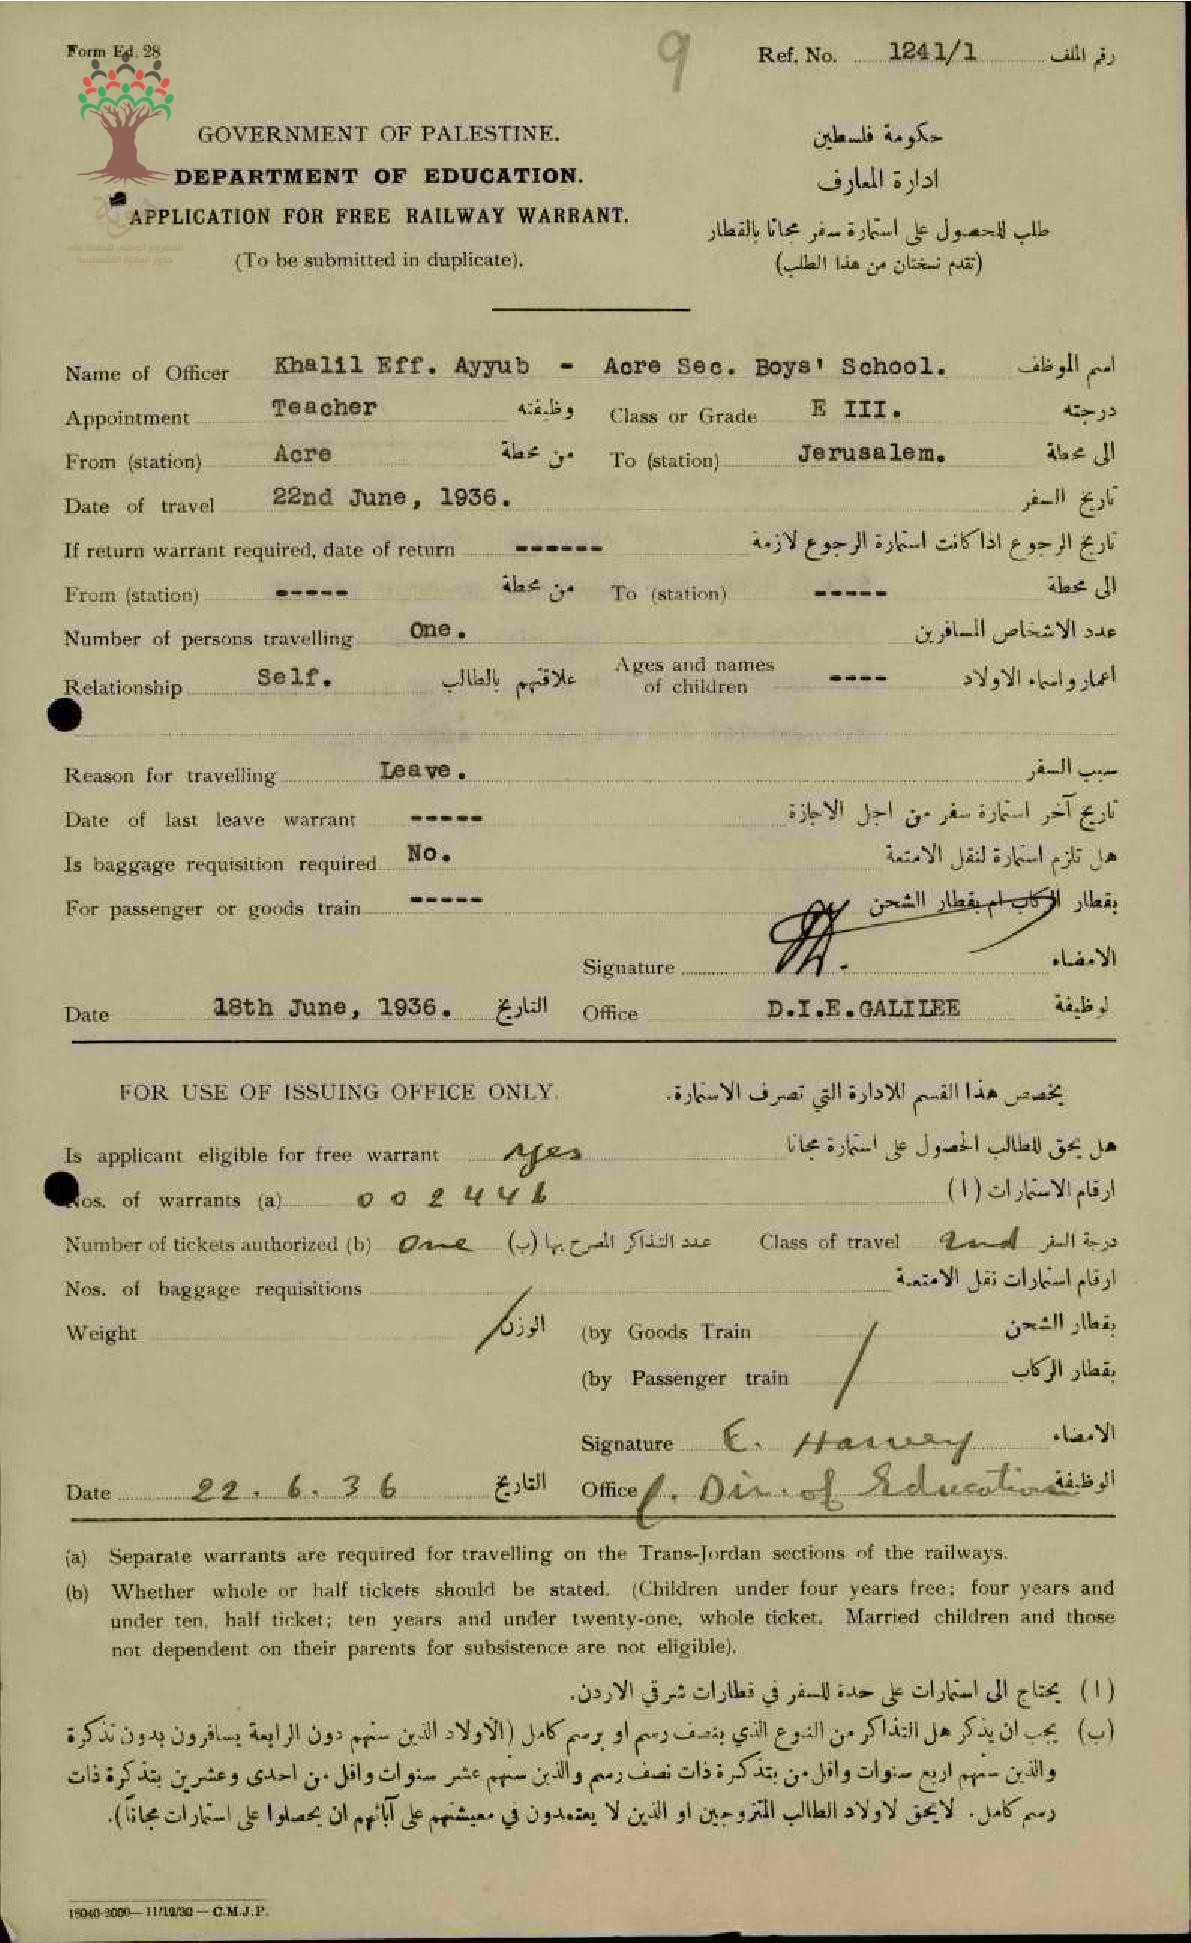 Form Ed. 28
9
Ref. No. 1241/1 رقم الملف
GOVERNMENT OF PALESTINE.
حكومة فلسطين
DEPARTMENT OF EDUCATION.
ادارة المعارف
APPLICATION FOR FREE RAILWAY WARRANT.
طلب للحصول على استمارة سفر مجانا بالقطار
(To be submitted in duplicate).
(تقدم نسختان من هذا الطلب)
هوية
المشروع الوطني للحفاظ على
جذور العائلة الفلسطينية
Name of Officer Khalil Eff. Ayyub - Acre Sec. Boys' School. اسم الموظف
Appointment Teacher وظيفته Class or Grade E III. درجته
From (station) Acre من محطة To (station) Jerusalem. الى محطة
Date of travel 22nd June, 1936. تاريخ السفر
If return warrant required, date of return ------ تاريخ الرجوع اذا كانت استمارة الرجوع لازمة
From (station) ----- من محطة To (station) ----- الى محطة
Number of persons travelling One. عدد الاشخاص المسافرين
Relationship Self. علاقتهم بالطالب Ages and names of children ---- اعمار واسماء الاولاد
Reason for travelling Leave. سبب السفر
Date of last leave warrant ----- تاريخ آخر استمارة سفر من اجل الاجازة
Is baggage requisition required No. هل تلزم استمارة لنقل الامتعة
For passenger or goods train ----- بقطار الركاب ام بقطار الشحن
Signature الامضاء
Date 18th June, 1936. التاريخ Office D.I.E.GALILEE لوظيفة
FOR USE OF ISSUING OFFICE ONLY. يخصص هذا القسم للادارة التي تصرف الاستمارة.
Is applicant eligible for free warrant yes هل يحق للطالب الحصول على استمارة مجانا
Nos. of warrants (a) 002446 ارقام الاستمارات (١)
Number of tickets authorized (b) one عدد التذاكر المصرح بها (ب) Class of travel 2nd درجة السفر
Nos. of baggage requisitions ارقام استمارات نقل الامتعة
Weight الوزن (by Goods Train بقطار الشحن
(by Passenger train بقطار الركاب
Signature E. Harvey الامضاء
Date 22.6.36 التاريخ Office f. Dir. of Education الوظيفة
(a) Separate warrants are required for travelling on the Trans-Jordan sections of the railways.
(b) Whether whole or half tickets should be stated. (Children under four years free; four years and
under ten, half ticket; ten years and under twenty-one, whole ticket. Married children and those
not dependent on their parents for subsistence are not eligible).
(١) يحتاج الى استمارات على حدة للسفر في قطارات شرقي الاردن.
(ب) يجب ان يذكر هل التذاكر من النوع الذي بنصف رسم او برسم كامل (الاولاد الذين سنهم دون الرابعة يسافرون بدون تذكرة
والذين سنهم اربع سنوات واقل من بتذكرة ذات نصف رسم والذين سنهم عشر سنوات واقل من احدى وعشرين بتذكرة ذات
رسم كامل. لايحق لاولاد الطالب المتزوجين او الذين لا يعتمدون في معيشتهم على آبائهم ان يحصلوا على استمارات مجاناً).
18040-2000—11/12/30—C.M.J.P.